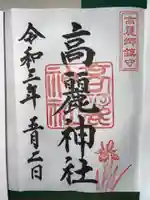 高麗郷鎮守
高麗神社
令和三年五月二日